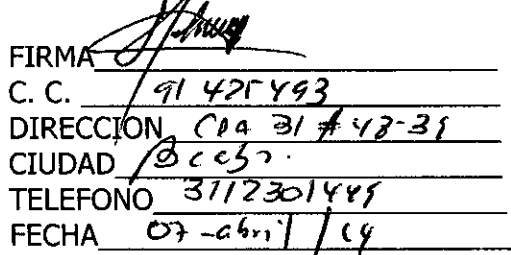 FIRMA
C. C. 91 425 493
DIRECCION Cra 31 # 48-39
CIUDAD B/ca
TELEFONO 3112301449
FECHA 07 - abril / 14